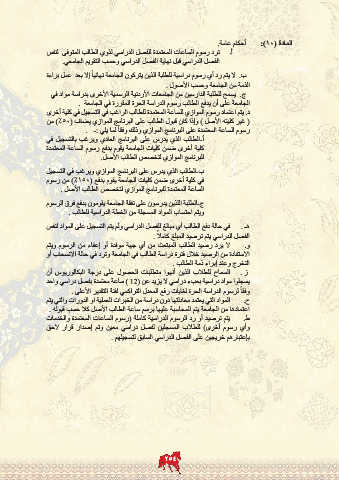 المادة (١٠): أحكام عامة:
أ. ترد رسوم الساعات المعتمدة للفصل الدراسي لذوي الطالب المتوفى لنفس
الفصل الدراسي قبل نهاية الفصل الدراسي وحسب التقويم الجامعي.
ب. لا يتم رد أي رسوم دراسية للطلبة الذين يتركون الجامعة نهائياً إلا بعد عمل براءة
الذمة من الجامعة وحسب الأصول.
ج. يسمح للطلبة الدارسين من الجامعات الأردنية الرسمية الأخرى بدراسة مواد في
الجامعة على أن يدفع الطالب رسوم الدراسة الحرة المقررة في الجامعة
د. يتم اعتماد رسوم الموازي للساعة المعتمدة للطالب الراغب في التسجيل في كلية أخرى
(غير كليته الأصل) وإذا كان قبول الطالب على البرنامج الموازي يضاف (٥٠٪) من
رسوم الساعة المعتمدة على البرنامج الموازي وذلك وفقاً لما يلي :-
أ.الطالب الذي يدرس على البرنامج العادي ويرغب بالتسجيل في
كلية أخرى ضمن كليات الجامعة يقوم بدفع رسوم الساعة المعتمدة
للبرنامج الموازي لتخصص الطالب الأصل.
ب.الطالب الذي يدرس على البرنامج الموازي ويرغب في التسجيل
في كلية أخرى ضمن كليات الجامعة يقوم بدفع (١٥٠٪) من رسوم
الساعة المعتمدة للبرنامج الموازي لتخصص الطالب الأصل .
ج.الطلبة الذين يدرسون على نفقة الجامعة يقومون بدفع فرق الرسوم
ويتم احتساب المواد المسجلة من الخطة الدراسية للطالب .
هـ. في حالة دفع الطالب أي مبالغ للفصل الدراسي ولم يتم التسجيل على المواد لنفس
الفصل الدراسي يتم ترصيد المبلغ كاملاً .
و. لا يرد رصيد الطالب المبتعث من أي جهة موفدة أو إعفاء من الرسوم ويتم
الاستفادة من الرصيد خلال فترة دراسة الطالب في الجامعة وترد في حالة الانسحاب أو
التخرج وعند إبراء ذمة الطالب .
ز. السماح للطلاب الذين أنهوا متطلبات الحصول على درجة البكالوريوس أن
يسجلوا مواد دراسية بعبء دراسي لا يزيد عن (12) ساعة معتمدة بفصل دراسي واحد
وفقاً لرسوم الدراسة الحرة لغايات رفع المعدل التراكمي لفئة التقدير الأعلى .
ح. المواد التي يعتمد معادلتها دون دراسة من الخبرات العملية أو الدورات والتي يتم
اعتمادها من الجامعة يتم المحاسبة عليها برسم ساعة الطالب الأصل كلاً حسب قبوله .
ط. يتم ترصيد أو رد الرسوم الدراسية كاملة (رسوم الساعات المعتمدة والخدمات
وأي رسوم أخرى) للطلاب المسجلين لفصل دراسي معين وتم إصدار قرار لاحق
بإعتبارهم خريجين على الفصل الدراسي السابق لتسجيلهم .